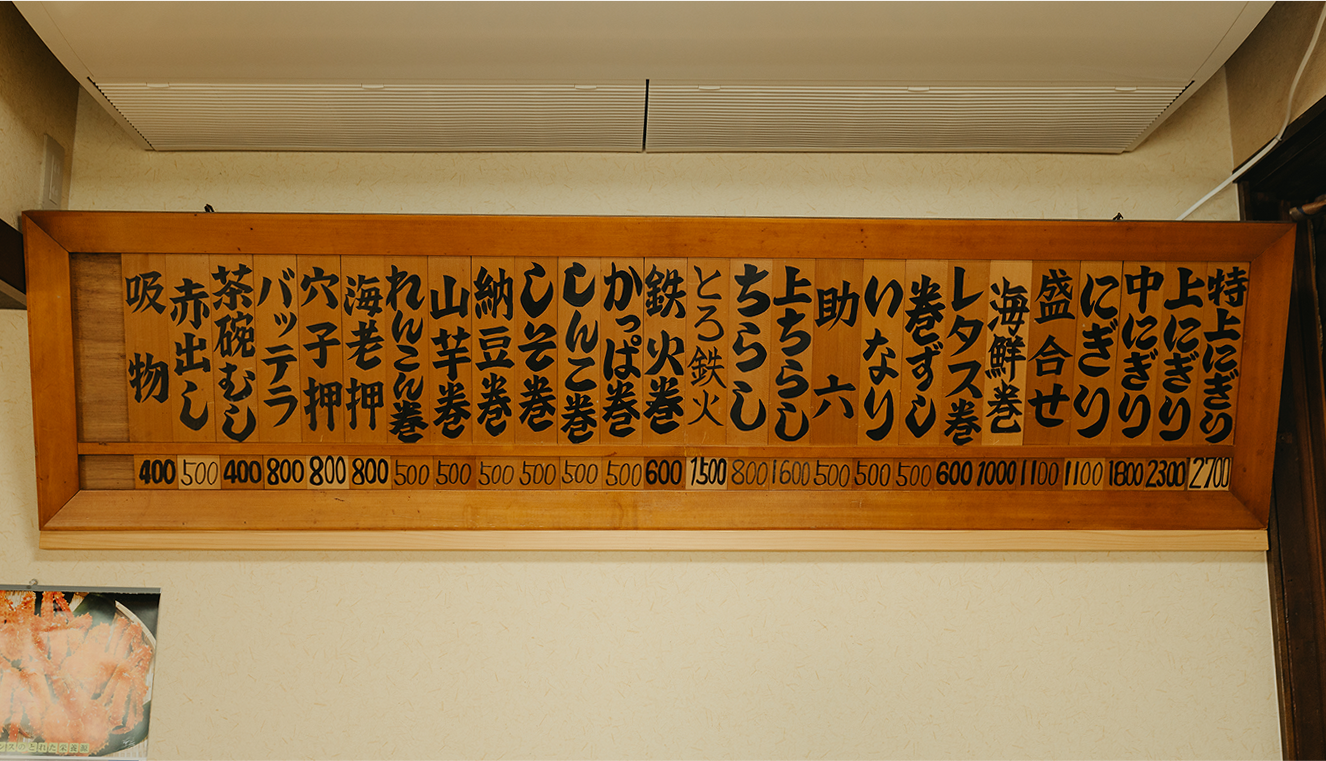 特上にぎり
上にぎり
中にぎり
にぎり
盛合せ
海鮮巻
レタス巻
巻ずし
いなり
助六
上ちらし
ちらし
とろ鉄火
鉄火巻
かっぱ巻
しんこ巻
しそ巻
納豆巻
山芋巻
れんこん巻
海老押
穴子押
バッテラ
茶碗むし
赤出し
吸物
2700
2300
1800
1100
1100
1000
600
500
500
500
1600
800
1500
600
500
500
500
500
500
500
800
800
800
400
500
400